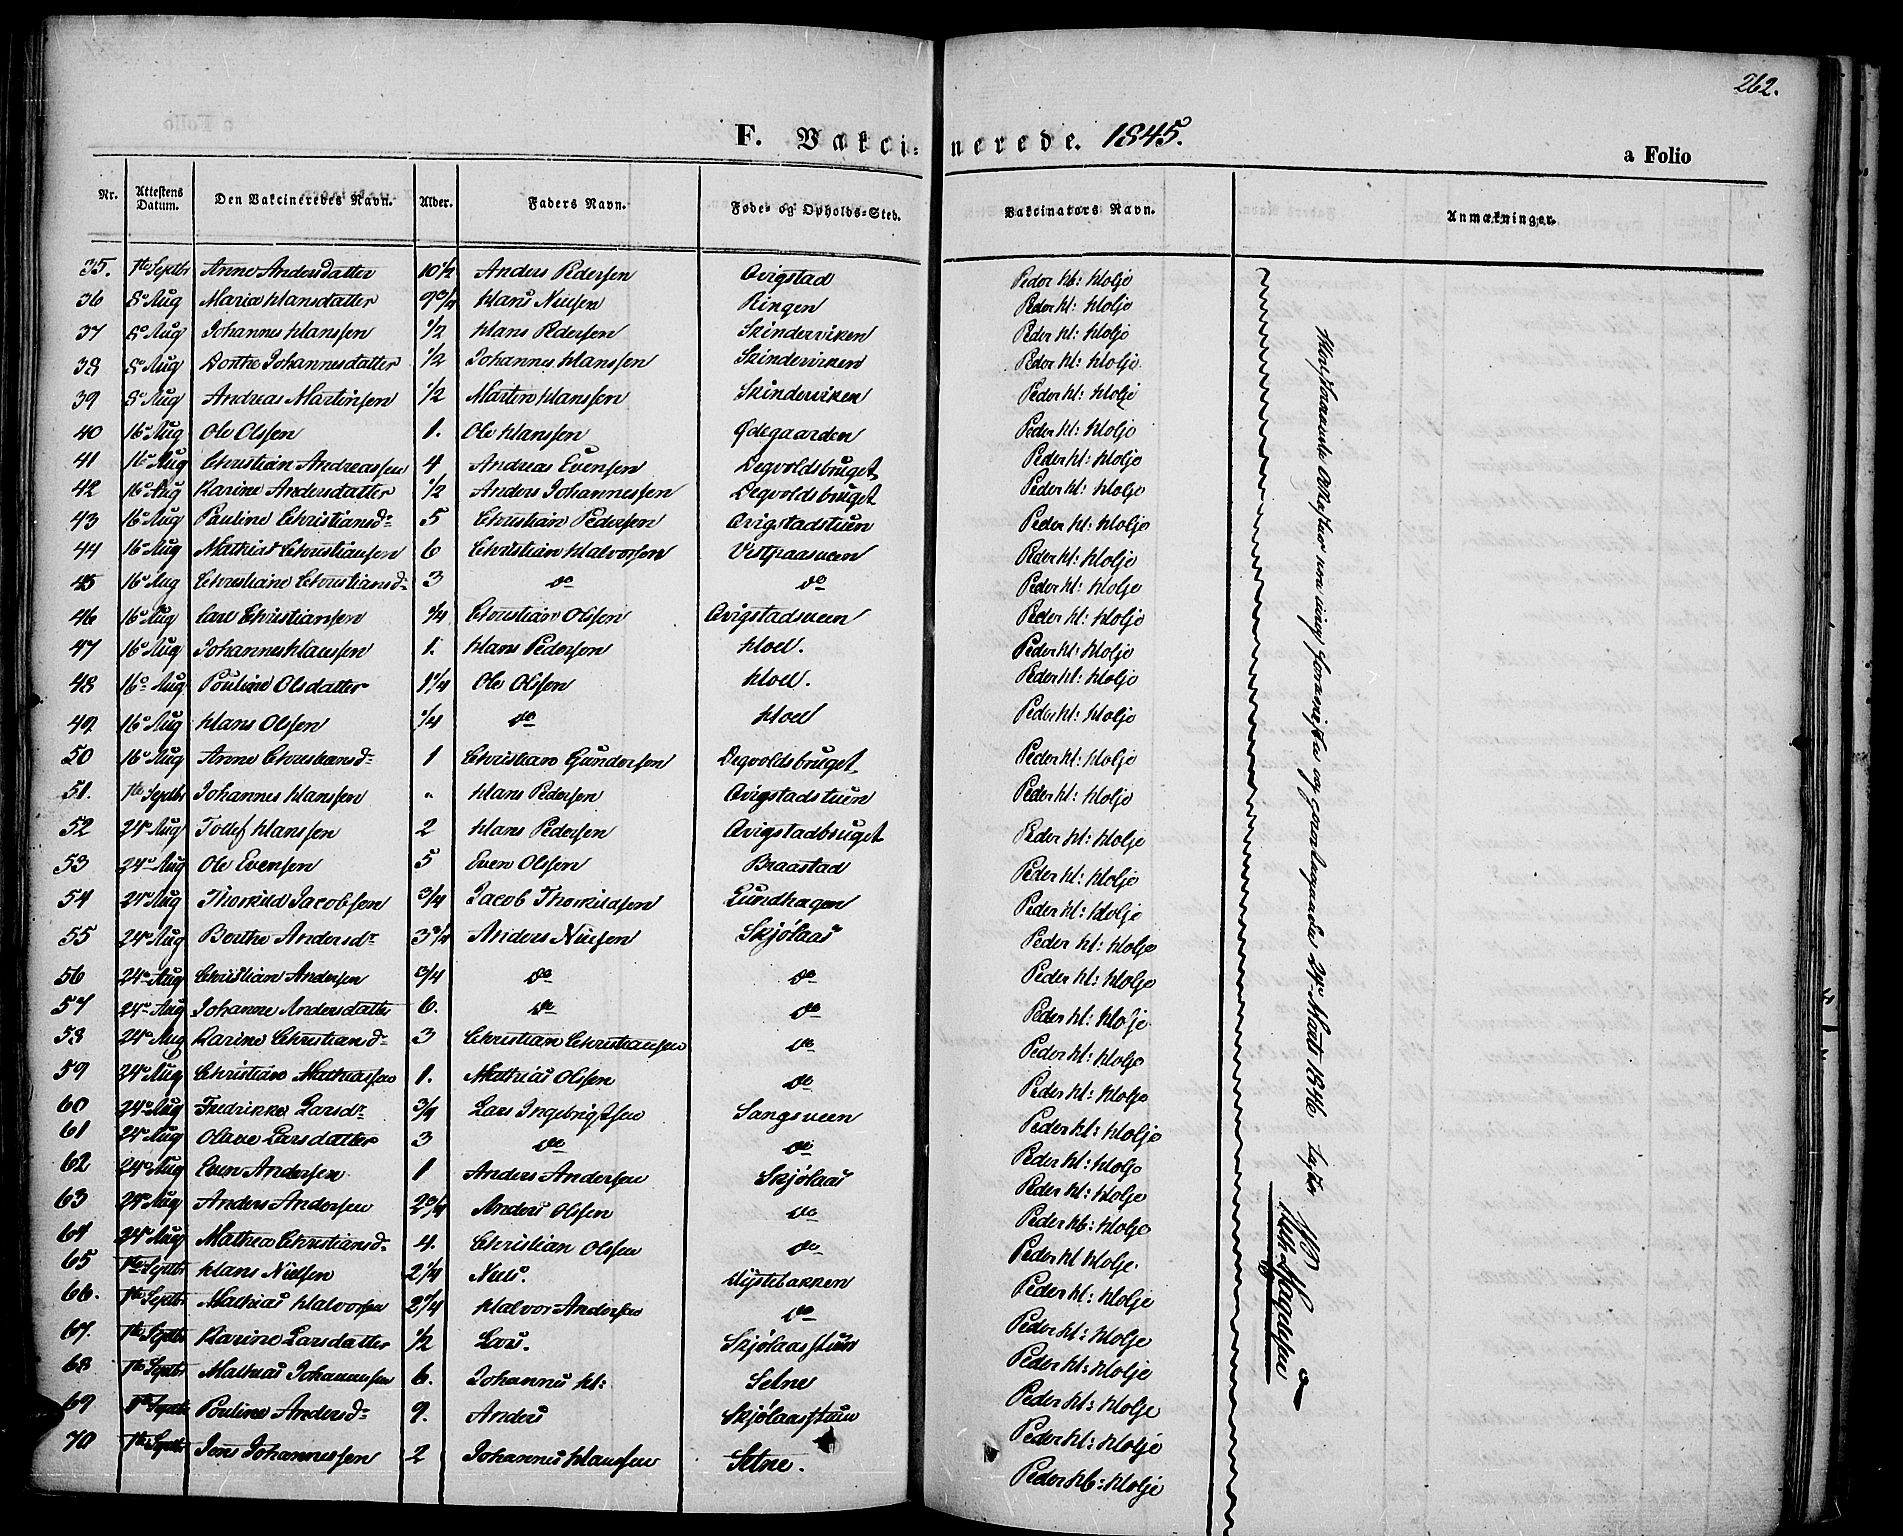 262.
F. Vakcinerede. 1845.
a Folio
Nr. Attestens Datum. Den Vakcineredes Navn. Alder. Faders Navn. Føde- og Opholds-Sted. Vakcinators Navn. Anmærkninger.
35. 1te Septbr Anne Andersdatter 10 1/2 Anders Pedersen Qvigstad Peder H: Holje
36 8e Aug Maria Hansdatter 9 3/4 Hans Nielsen Ringen Peder H: Holje
37 8e Aug Johannes Hanssen 1/2 Hans Pedersen Skinderviken Peder H: Holje
38 8e Aug Dorthe Johannesdatter 1/2 Johannes Hanssen Skinderviken Peder H: Holje
39 8e Aug Andreas Martinsen 1/2 Martin Hanssen Skinderviken Peder H: Holje
40 16e Aug Ole Olssen 1. Ole Hanssen Ødegaarden Peder H: Holje
41 16e Aug Christian Andreassen 4 Andreas Evensen Degvoldsbruget Peder H: Holje
42 16e Aug Karine Andersdatter 1/2 Anders Johannessen Degvoldsbruget Peder H: Holje
43 16e Aug Pauline Christiansdr 5 Christian Pedersen Qvigstadstuen Peder H: Holje
44 16e Aug Mathias Christiansen 6 Christian Halvorsen Vestraasveen Peder H: Holje
45 16e Aug Christiane Christiansdr 3 do do Peder H: Holje
46 16e Aug Carl Christiansen 3/4 Christian Olssen Qvigstadsveen Peder H: Holje
47 16e Aug Johannes Hanssen 1. Hans Pedersen Hoel. Peder H: Holje
48 16e Aug Pouline Olsdatter 1 1/4 Ole Olssen Hoel. Peder H: Holje
49 16e Aug Hans Olssen 1/4 do Hoel Peder H: Holje
50 16e Aug Anne Christiansdr 1 Christian Gundersen Degvoldsbruget Peder H: Holje
51. 1te Septbr Johannes Hanssen " Hans Pedersen Qvigstadstuen Peder H: Holje
52 24e Aug Tollef Hanssen 2 Hans Pedersen Qvigstadbruget Peder H: Holje
53 24e Aug Ole Evensen 5 Even Olssen Braastad Peder H: Holje
54 24e Aug Thorkild Jacobsen 3/4 Jacob Thorkildsen Lundhagen Peder H: Holje
55 24e Aug Berthe Andersdr 3 3/4 Anders Nielsen Skjølaas Peder H: Holje
56 24e Aug Christian Andersen 3/4 do do Peder H: Holje
57 24e Aug Johanne Andersdatter 6. do do Peder H: Holje
58 24e Aug Karine Christiansdr 3 Christian Christiansen do Peder H: Holje
59 24e Aug Christian Mathiassen 1. Mathias Olssen do Peder H: Holje
60 24e Aug Fredrikke Larsdr 3/4 Lars Ingebrigtsen Sangsveen Peder H: Holje
61 24e Aug Oliane Larsdatter 3 do do Peder H: Holje
62 24e Aug Even Andersen 1 Anders Andersen Skjølaas Peder H: Holje
63 24e Aug Anders Andersen 2 3/4 Anders Olssen do Peder H: Holje
64 24e Aug Mathea Christiansdr 4. Christian Olssen do Peder H: Holje
65 1te Septbr Hans Nielsen 2 1/4 Niels. Hystebakken Peder H Holje
66. 1te Septbr Mathias Halvorsen 2 1/4 Halvor Andersen do Peder H: Holje
67. 1te Septbr Karine Larsdatter 1/2 Lars. Skjølaasstuen Peder H: Holje
68 1te Septbr Mathias Johannessen 6. Johannes H: Selne Peder H: Holje
69 1te Septbr Pouline Andersdr 9. Anders Skjølaasstuen Peder H: Holje
70 1te Septbr Jens Johannessen 2 Johannes Hanssen Selne. Peder H: Holje
Peder H: Holje
og 24e Marts 1846